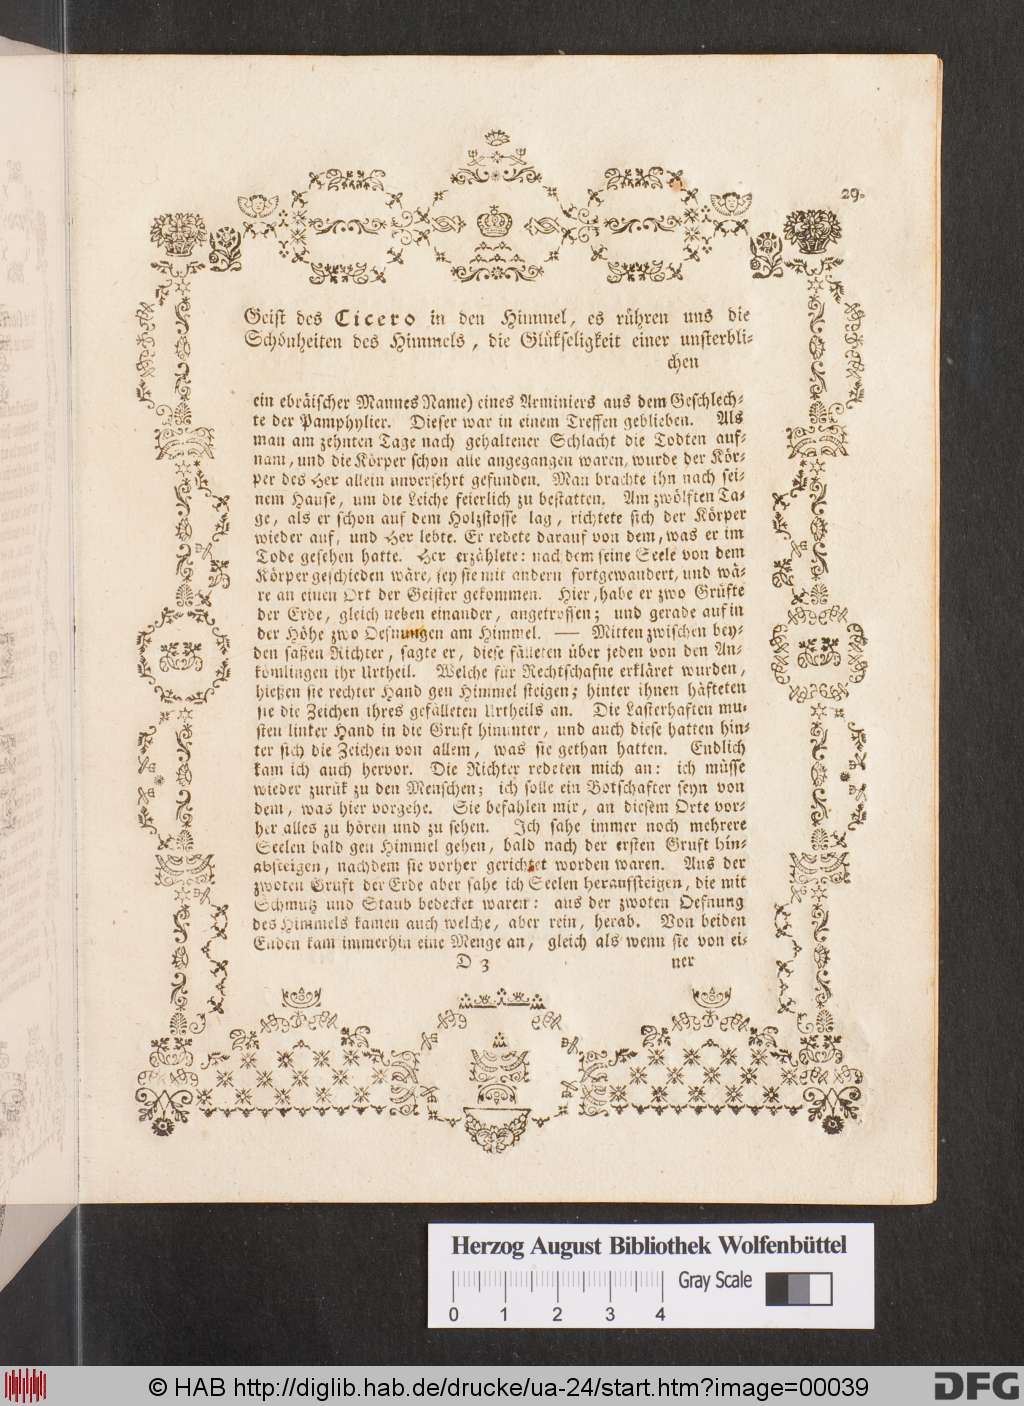 29.
Geist des Cicero in den Himmel, es rühren uns die
Schönheiten des Himmels, die Glükseligkeit einer unsterbli-
chen
ein ebräischer Mannes Name) eines Arminiers aus dem Geschlech-
te der Pamphylier. Dieser war in einem Treffen geblieben. Als
man am zehnten Tage nach gehaltener Schlacht die Todten auf-
nam, und die Körper schon alle angegangen waren, wurde der Kör-
per des Her allein unversehrt gefunden. Man brachte ihn nach sei-
nem Hause, um die Leiche feierlich zu bestatten. Am zwölften Ta-
ge, als er schon auf dem Holzstosse lag, richtete sich der Körper
wieder auf, und Her lebte. Er redete darauf von dem, was er im
Tode gesehen hatte. Her erzählete: nach dem seine Seele von dem
Körper geschieden wäre, sey sie mit andern fortgewandert, und wä-
re an einen Ort der Geister gekommen. Hier, habe er zwo Grüfte
der Erde, gleich neben einander, angetroffen; und gerade auf in
der Höhe zwo Oefnungen am Himmel. — Mitten zwischen bey-
den säßen Richter, sagte er, diese fälleten über jeden von den An-
kömlingen ihr Urtheil. Welche für Rechtschafne erkläret wurden,
hießen sie rechter Hand gen Himmel steigen; hinter ihnen häfteten
sie die Zeichen ihres gefälleten Urtheils an. Die Lasterhaften mu-
sten linker Hand in die Gruft hinunter, und auch diese hatten hin-
ter sich die Zeichen von allem, was sie gethan hatten. Endlich
kam ich auch hervor. Die Richter redeten mich an: ich müsse
wieder zurük zu den Menschen; ich solle ein Botschafter seyn von
dem, was hier vorgehe. Sie befahlen mir, an diesem Orte vor-
her alles zu hören und zu sehen. Ich sahe immer noch mehrere
Seelen bald gen Himmel gehen, bald nach der ersten Gruft hin-
absteigen, nachdem sie vorher gerichtet worden waren. Aus der
zwoten Gruft der Erde aber sahe ich Seelen heraufsteigen, die mit
Schmutz und Staub bedecket waren: aus der zwoten Oefnung
des Himmels kamen auch welche, aber rein, herab. Von beiden
Enden kam immerhin eine Menge an, gleich als wenn sie von ei-
D 3 ner
Herzog August Bibliothek Wolfenbüttel
Gray Scale
0 1 2 3 4
© HAB http://diglib.hab.de/drucke/ua-24/start.htm?image=00039
DFG